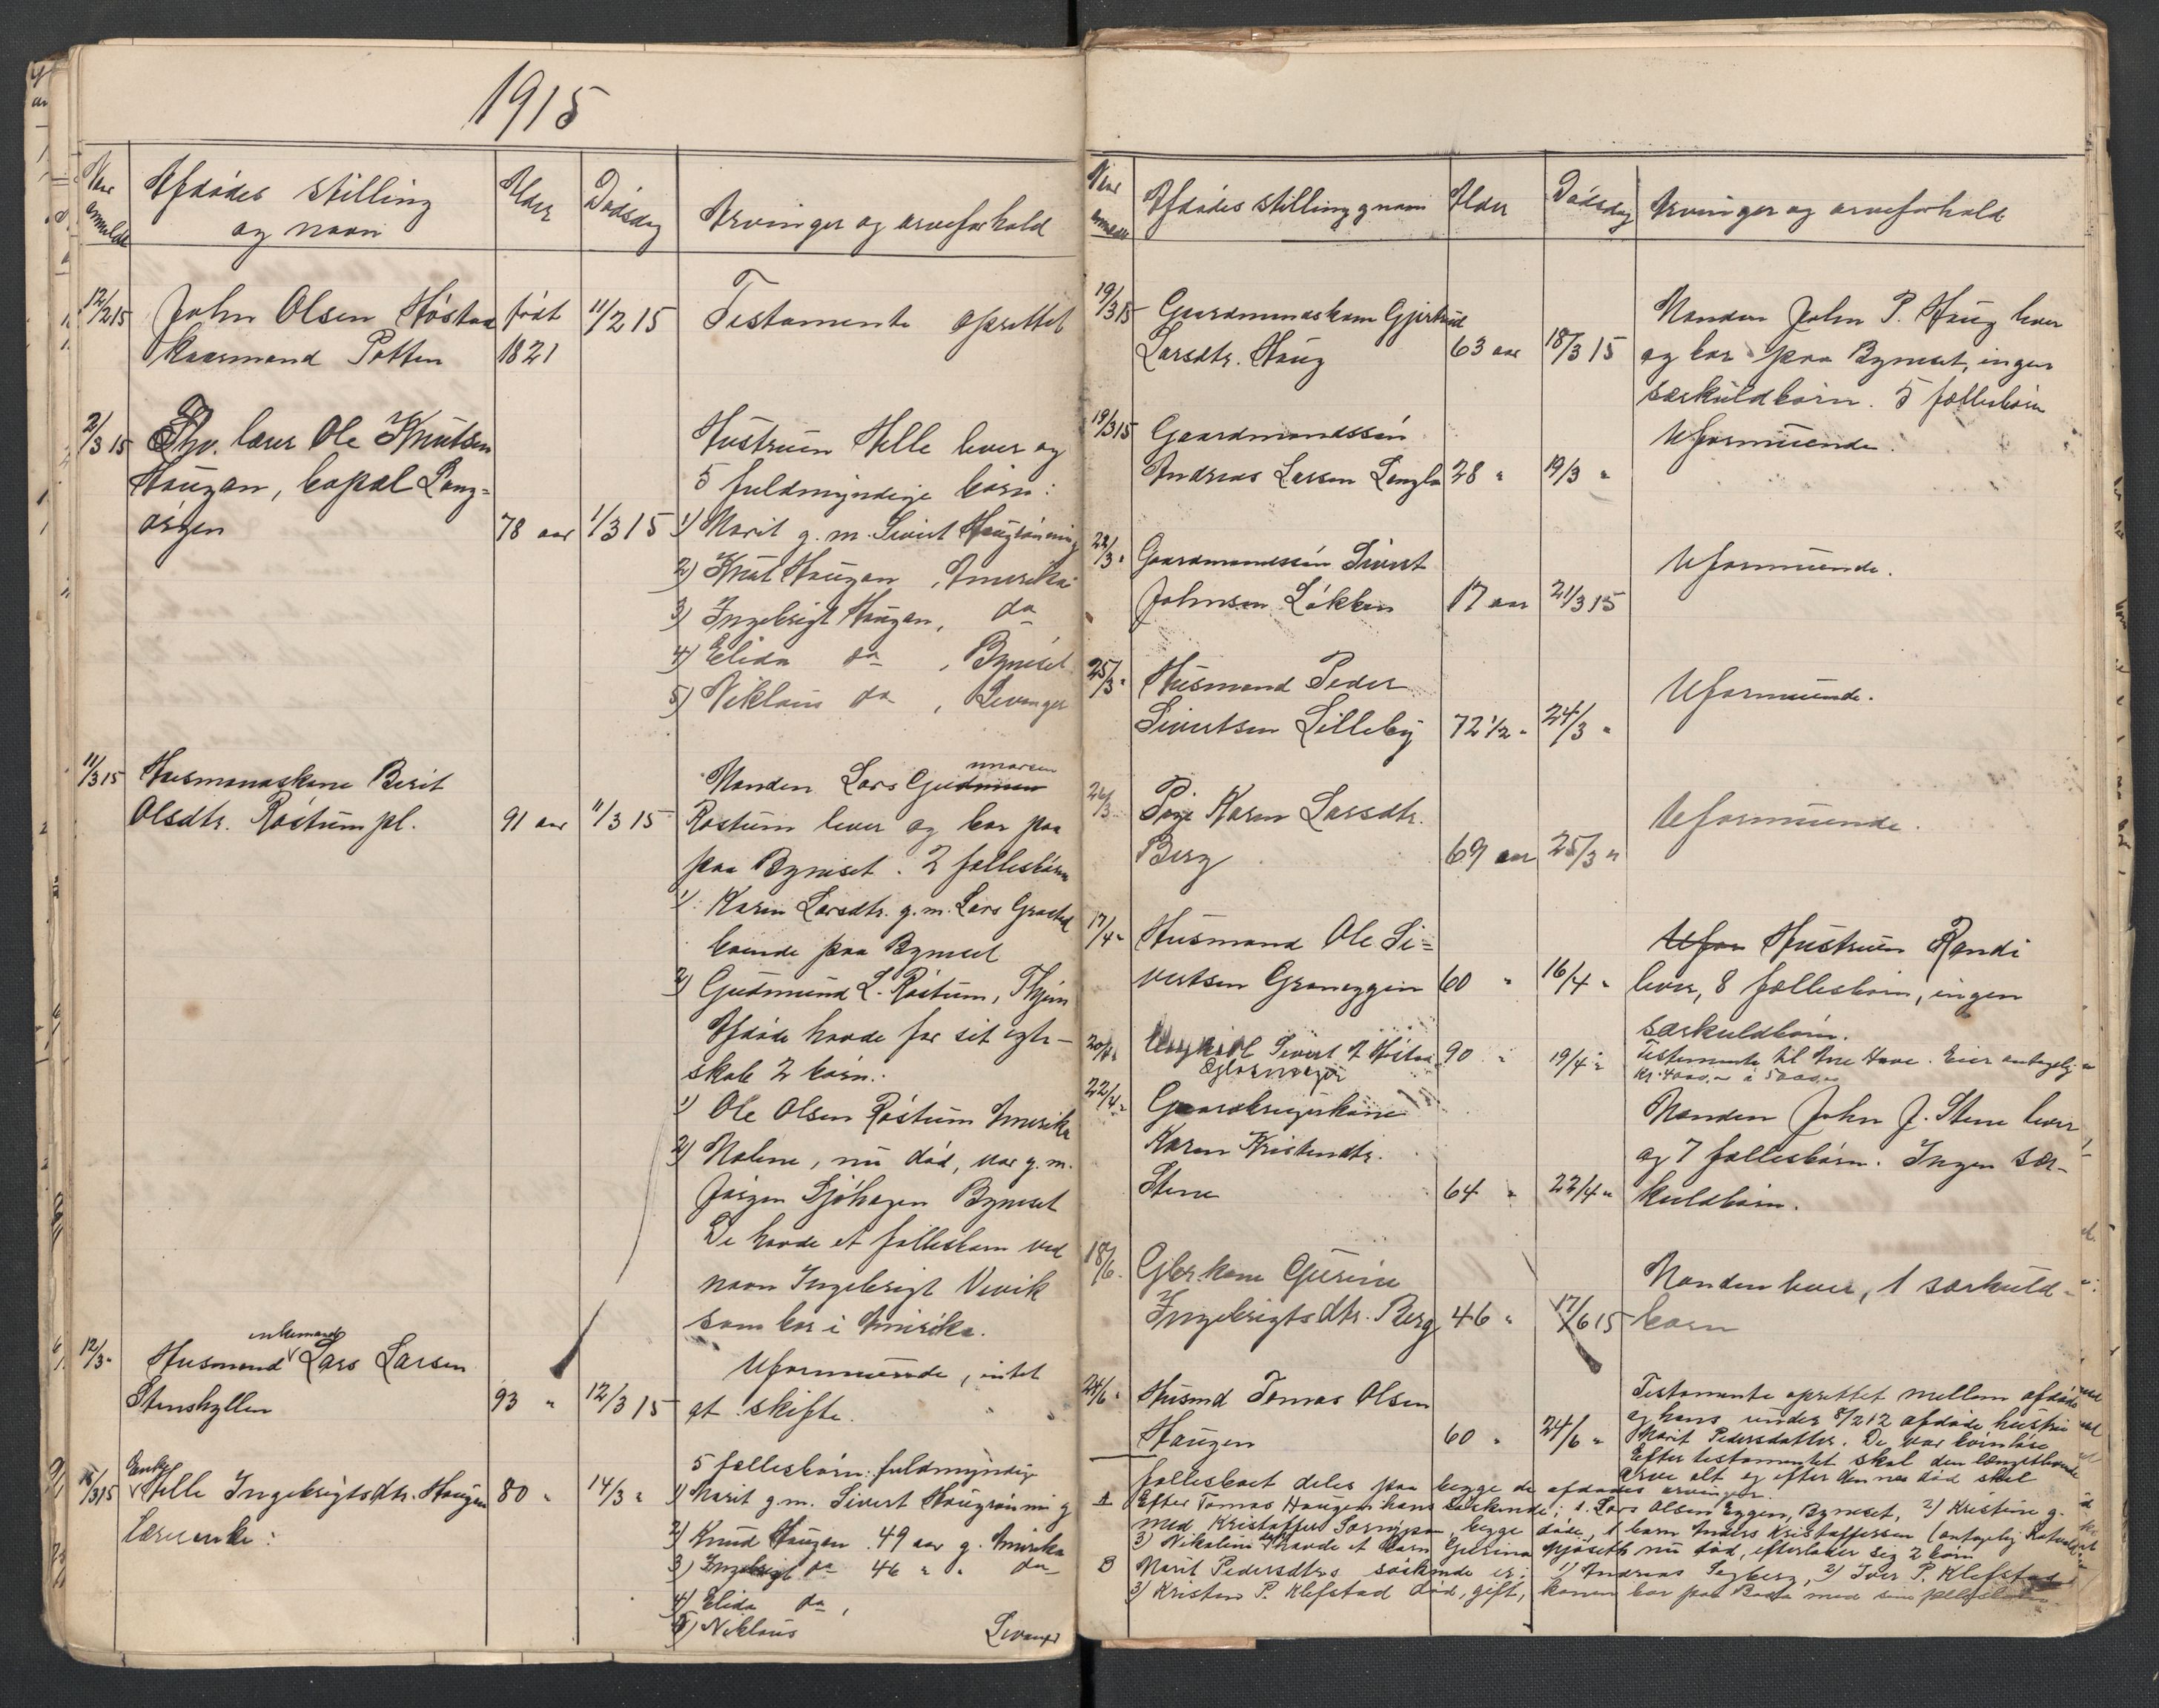 1915
Naar anmeldt
Afdødes stilling og navn
Alder
Dødsdag
Arvinger og arveforhold
12/2 15 John Olsen Høstad født 11/2 15 Testamente oprettet
kaarmand Potten 1821
2/3 15 Fhv. lærer Ole Knutsen Hustruen Helle lever og
Haugan, bopæl Lang= 5 fuldmyndige børn:
ørgen 78 aar 1/3 15 1) Marit g. m. Sivert Haugrønning
2) Knut Haugan, Amerika
3) Ingebrigt Haugan, do
4) Elida do, Bynæset
5) Niklaus do, Levanger
11/3 15 Husmandskone Berit Manden Lars Gudmunsen
Olsdtr. Røstum pl. 91 aar 11/3 15 Røstum lever og bor paa
paa Bynæset. 2 fællesbørn
1) Karen Larsdtr. g. m. Lars
boende paa Bynæset
2) Gudmund L. Røstum,
Afdøde havde før sit egte-
skab 2 børn:
1) Ole Olsen Røstum Amerika
2) Malene, nu død, var g. m.
Jørgen Sjøhagen Bynæset
De havde et fællesbarn ved
navn Ingebrigt Vevik
som bor i Amerika.
12/3 " Husmand enkemand Lars Larsen Uformuende, intet
Stenshyllen 93 " 12/3 15 at skifte.
15/3 15 Enke Helle Ingebrigtsdtr. Haugen 80 " 14/3 " 5 fællesbørn: fuldmyndige
Lærerenke: 1) Marit g m. Sivert Haugrønning
2) Knud Haugan 49 aar g. Amerika
3) Ingebrigt do 46 " " do
4) Elida do,
5) Niklaus Levanger
Naar anmeldt
Afdødes stilling og navn
Alder
Dødsdag
Arvinger og arveforhold
19/3 15 Gaardmandskone Gjertrud Manden John P. Haug lever
Larsdtr. Haug 63 aar 18/3 15 og bor paa Bynæset, ingen
særkuldbørn. 5 fællesbørn
19/3 15 Gaardmandssøn Uformuende.
Andreas Larsen 28 " 19/3 "
22/3 " Gaardmandssøn Sivert Uformuende.
Johnsen Løkken 17 aar 21/3 15
25/3 " Husmand Peder Uformuende.
Sivertsen Lilleby 72 1/2 " 24/3 "
26/3 Pige Karen Larsdtr. Uformuende.
Berg 69 aar 25/3 "
17/4 " Husmand Ole Si= Ufor Hustruen Randi
vertsen Graneggen 60 " 16/4 " lever, 8 fællesbørn, ingen
særkuldbørn.
20/4 " Ungkarl Sivert J Høstad 90 " 19/4 " Testamente til Ane Have. Eier antagelig
Kr. 4000,- à 5000,-
22/4 " Gaardbrugerkone Manden John J. Stene lever
Karen Kristendtr. og 7 fællesbørn. Ingen sær-
Stene 64 " 22/4 " kuldbørn.
18/6 " Gbr. kone Gurine Manden lever, 1 særkuld-
Ingebrigtsdtr. Berg 46 " 17/6 15 barn
24/6 " Husmd Tomas Olsen Testamente oprettet mellem afdøde
Haugen 60 " 24/6 " og hans under 8/2 12 afdøde hustru
Marit Pedersdatter. De var barnløse
Efter testamentet skal den længstlevende
arve alt og efter dennes død skal
fællesboet deles paa begge de afdødes arvinger.
A Efter Tomas Haugen hans søskende: 1. Lars Olsen Eggen, Bynæset, 2) Kristine g.
med Kristoffer begge døde, 1 barn Anders Kristoffersen (antagelig
3) Nikoline død havde et barn Gurina nu død, efterlader sig 2 børn
B Marit Pedersdtrs søskende er: 1) Andreas 2) Iver P. Klefstad
3) Kristen P. Klefstad død, gift, konen bor paa med sine